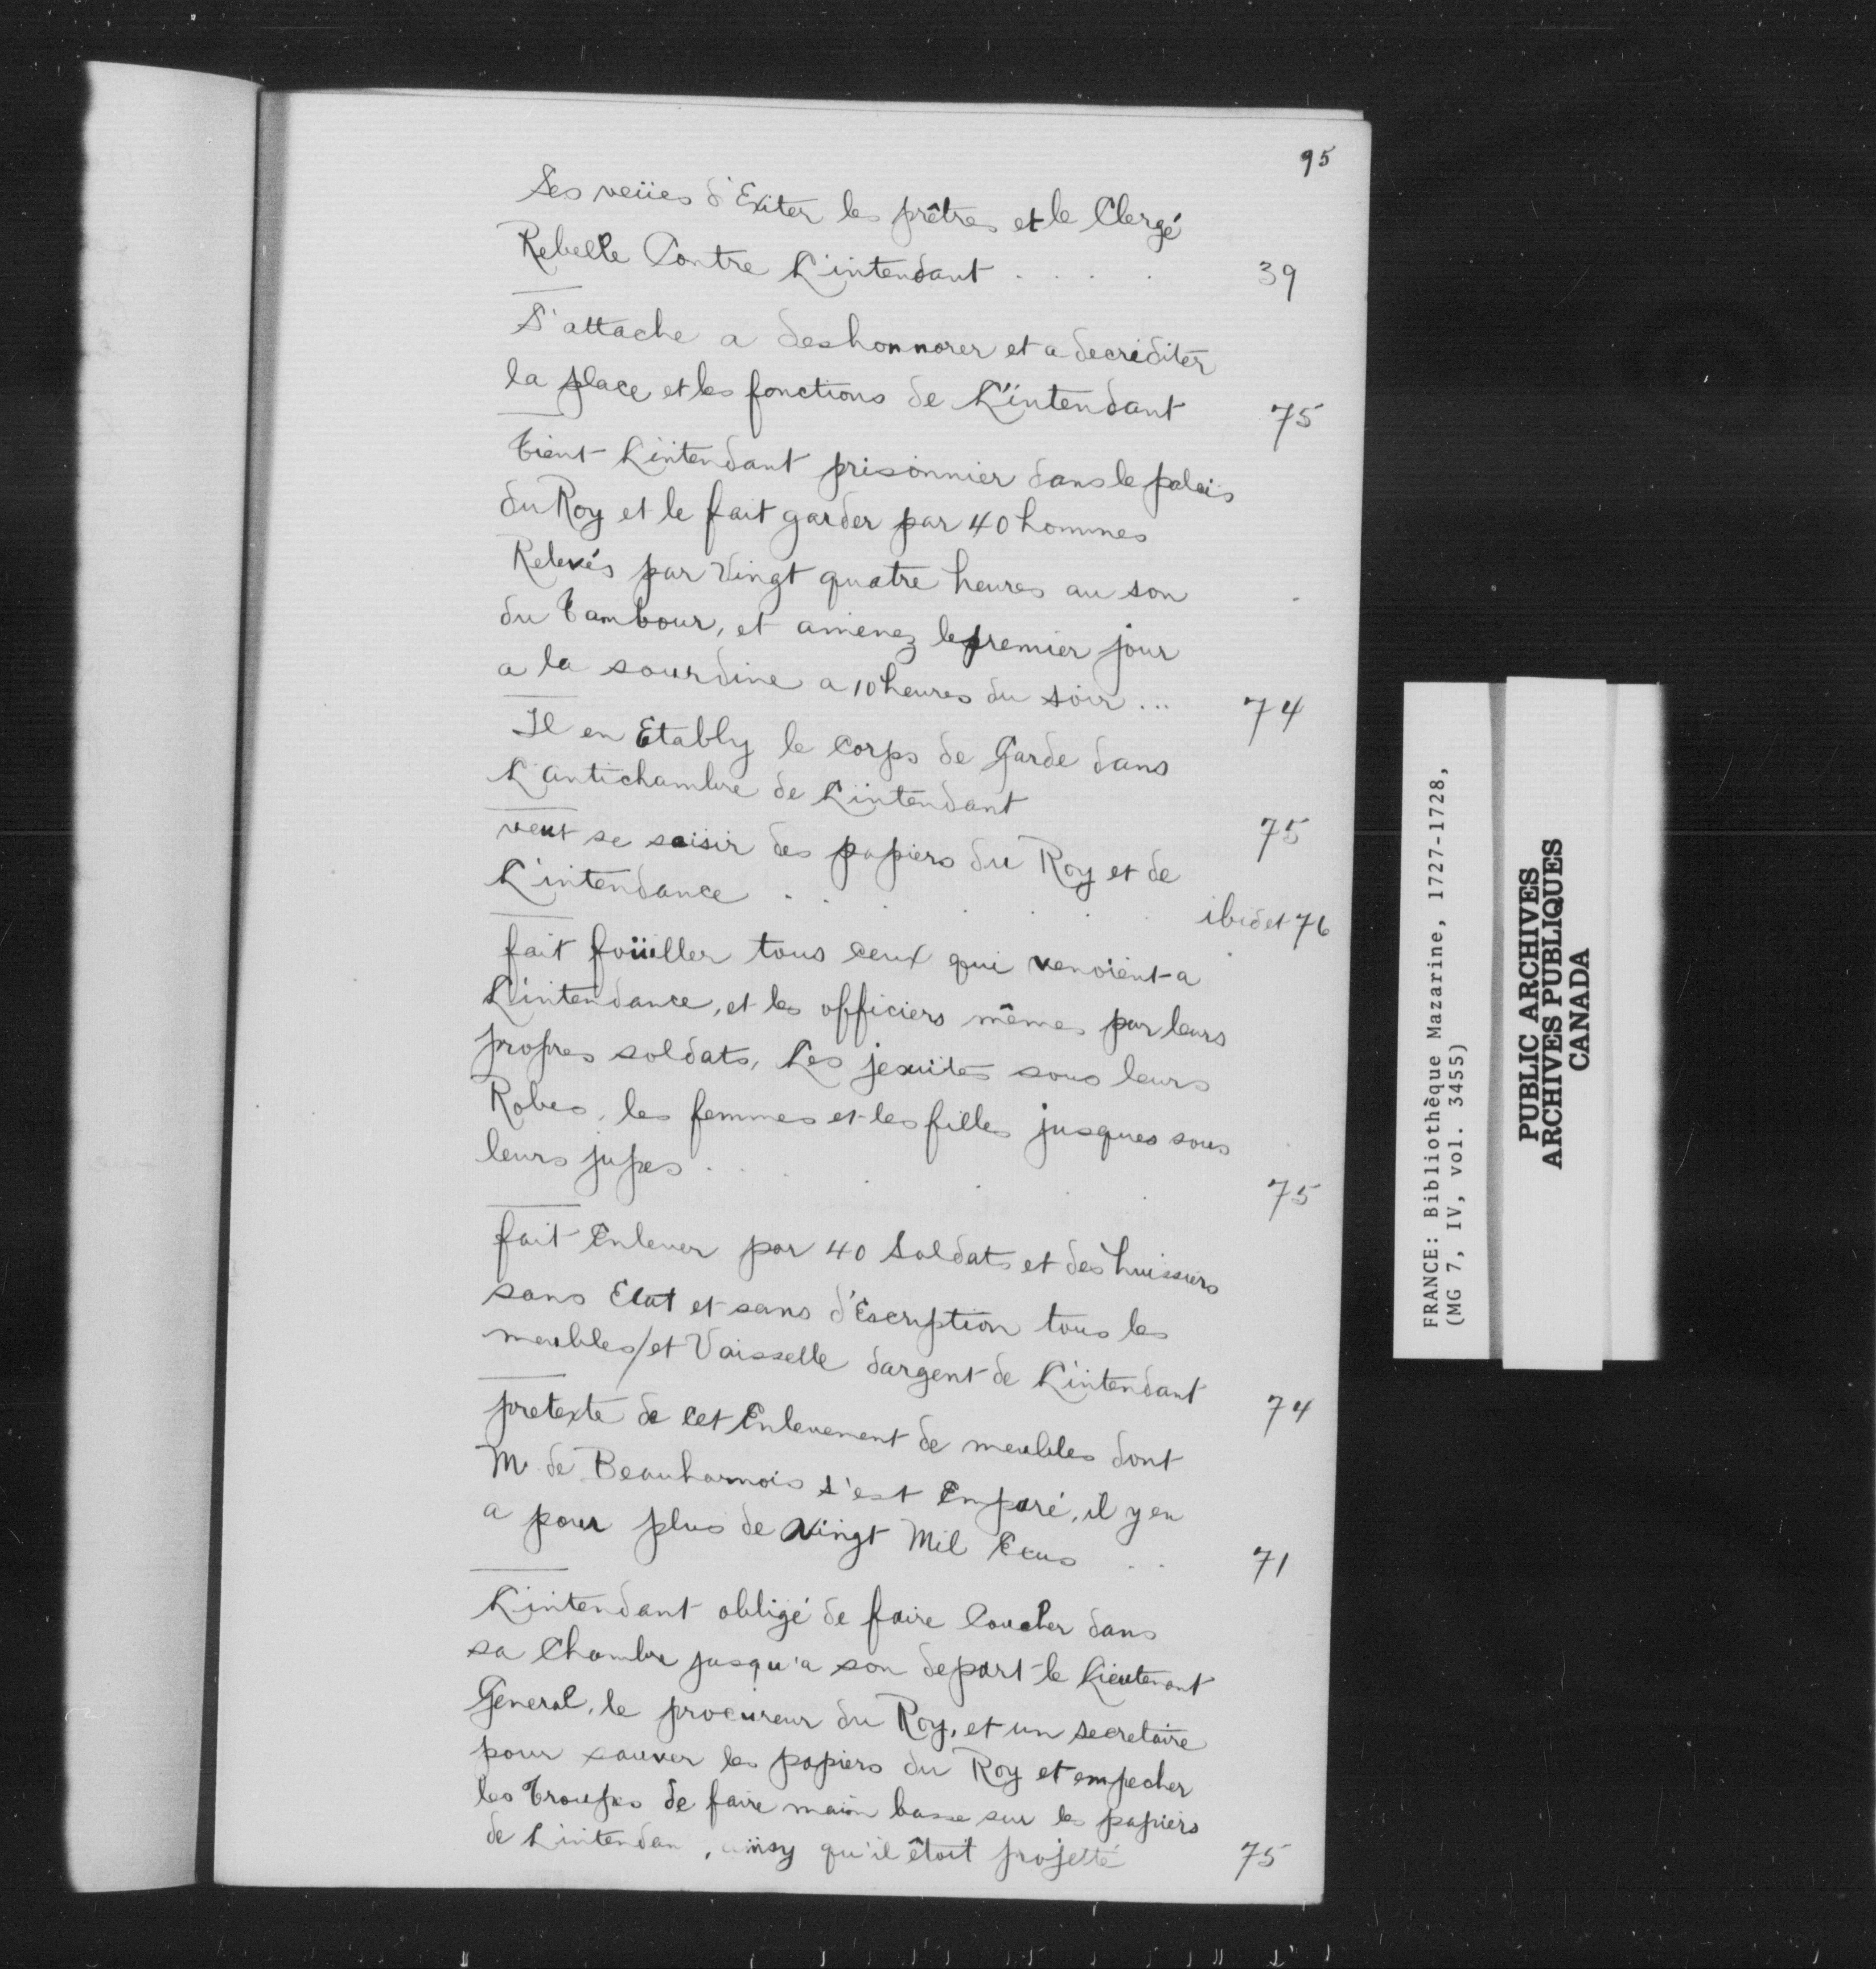 95
Ses veües d'Exiter les prêtres et le Clergé
Rebelle Contre L'intendant . . . . 39
S'attache a deshonnorer et a decréditer
la place et les fonctions de L'intendant 75
Tient L'intendant prisonnier dans le palais
du Roy et le fait garder par 40 hommes
Relevés par Vingt quatre heures au son
du Tambour, et amenez le premier jour
a la sourdine a 10 heures du soir ... 74
Il en Etably le Corps de Garde dans
L'antichambre de L'intendant 75
veut se saisir des papiers du Roy et de
L'intendance . . . . . . ibid et 76
fait foüiller tous ceux qui venoient a
L'intendance, et les officiers mêmes par leurs
propres soldats, Les jesuites sous leurs
Robes, les femmes et les filles jusques sous
leurs jupes . . . . . . 75
fait Enlever par 40 Soldats et des huissiers
sans Etat et sans d'Escription tous les
meubles/et Vaisselle dargent de L'intendant 74
pretexte de cet Enlevement de meubles dont
Mr de Beauharnois s'est Emparé, il y en
a pour plus de Vingt Mil Ecus . . 71
L'intendant obligé de faire Coucher dans
sa Chambre jusqu'a son depart le Lieutenant
General, le procureur du Roy, et un secretaire
pour sauver les papiers du Roy et empecher
les Troupes de faire main basse sur les papiers
de L'intendan , ainsy qu'il êtoit projetté 75
FRANCE: Bibliothèque Mazarine, 1727-1728,
(MG 7, IV, vol. 3455)
PUBLIC ARCHIVES
ARCHIVES PUBLIQUES
CANADA